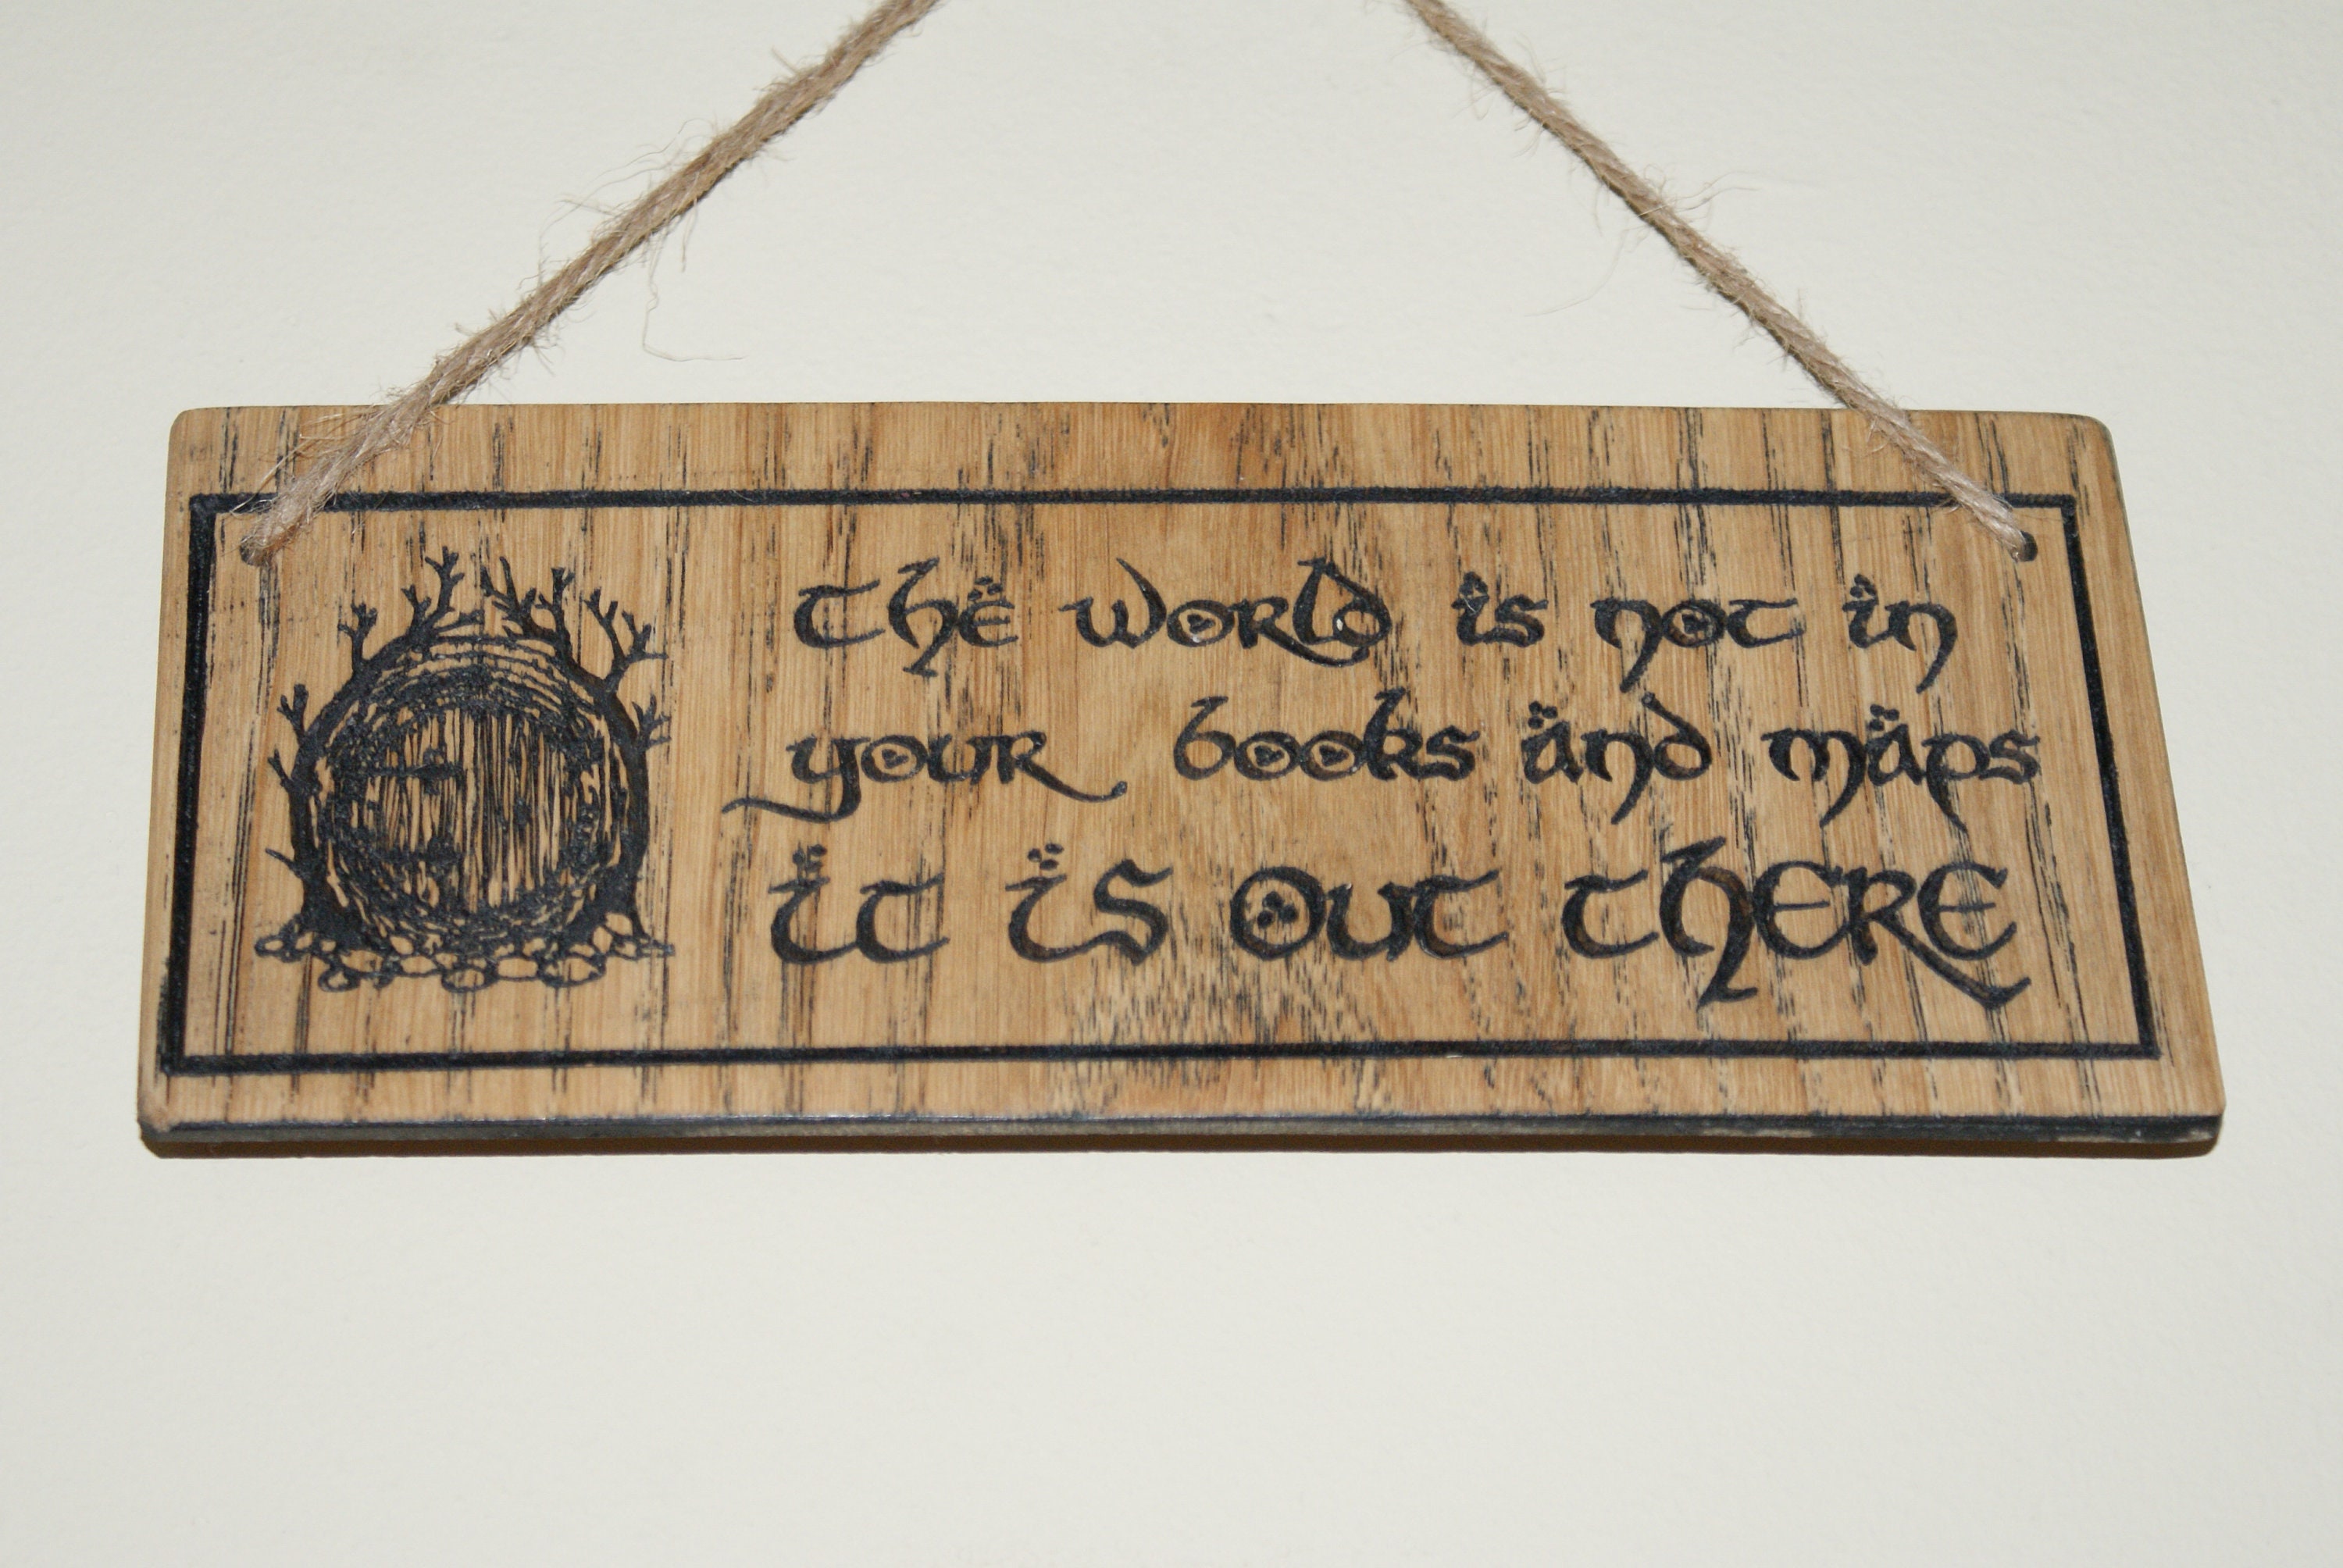 The world is not in
your books and maps
it is out thERE